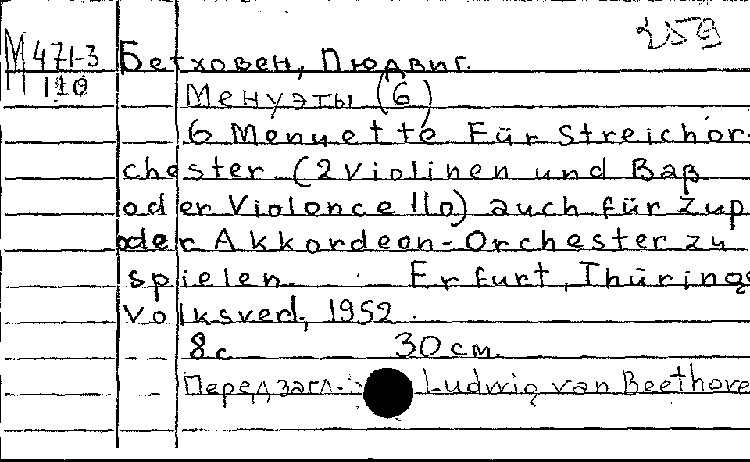 259
М 471-3
110
Бетховен, Людвиг.
Менуэты (6)
6 Menuette Für Streichor-
chester (2 Violinen und Baß
oder Violoncello) auch für Zup
oder Akkordeon-Orchester zu
spielen. Erfurt, Thüring
Volksverl, 1952.
8 с 30 см.
Перед загл.: Ludwig van Beethove